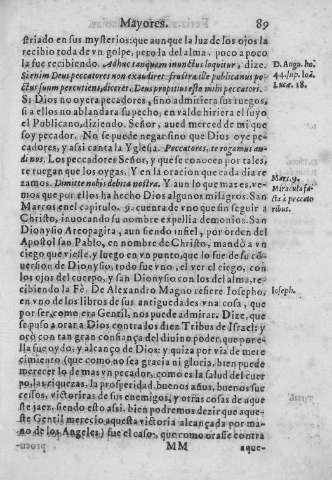 Mayores. 89
striado en sus mysterios: que aunque la luz de los ojos la
recibio toda de vn golpe, pero la del alma, poco a poco
la fue recibiendo. Adhuc tanquam inunctus loquitur, dize.
Si enim Deus peccatores non exaudiret frustra ille publicanus pe-
ctus suum percutiens, diceret. Deus propitius esto mihi peccatori.
Si Dios no oyera pecadores, sino admitiera sus ruegos,
si a ellos no ablandara su pecho, en valde hiriera el suyo
el Publicano, diziendo. Señor, aued merced de mi que
soy pecador. No se puede negar sino que Dios oye pe-
cadores, y assi canta la Yglesia. Peccatores, te rogamus au-
di nos. Los peccadores Señor, y que se conocen por tales,
te ruegan que los oygas. Y en la oracion que cada dia re
zamos. Dimitte nobis debita nostra. Y aun lo que mas es, ve-
mos que por ellos ha hecho Dios algunos milagros. San
Marcos en el capitulo. 9. cuenta de vno que sin seguir a
Christo, inuocando su nombre expellia demonios. San
Dionysio Areopagita, aun siendo infiel, por orden del
Apostol san Pablo, en nombre de Christo, mandò a vn
ciego que viesse, y luego en vn punto, que lo fue de su cõ
uersion de Dionysio, todo fue vno, el ver el ciego, con
los ojos del cuerpo, y san Dionysio con los del alma, re-
cibiendo la Fè. De Alexandro Magno refiere Iosepho,
en vno de los libros de sus antiguedades vna cosa, que
por ser como era Gentil, nos puede admirar. Dize, que
se puso a orar a Dios contra los diez Tribus de Israel: y
orò con tan grande confiança del diuino poder, que por e-
lla fue oydo: y alcanço de Dios: y quiza por via de mere
cimiento (que como no sea gracia ni gloria, bien puede
merecer lo de mas vn pecador, como es la salud del cuer
po, las riquezas, la prosperidad, buenos años, buenos suc
cessos, victorias de sus enemigos, y otras cosas de aque
ste jaez, siendo esto assi, bien podremos dezir que aque-
ste Gentil merecio aquesta victoria alcançada por ma-
no de los Angeles) fue el caso, que como orasse contra
MM aque-
D. Aug. ho.
44. sup. Ioã.
Lucæ. 18.
Marc. 9.
Miracula fa-
cta à peccato
ribus.
Ioseph.